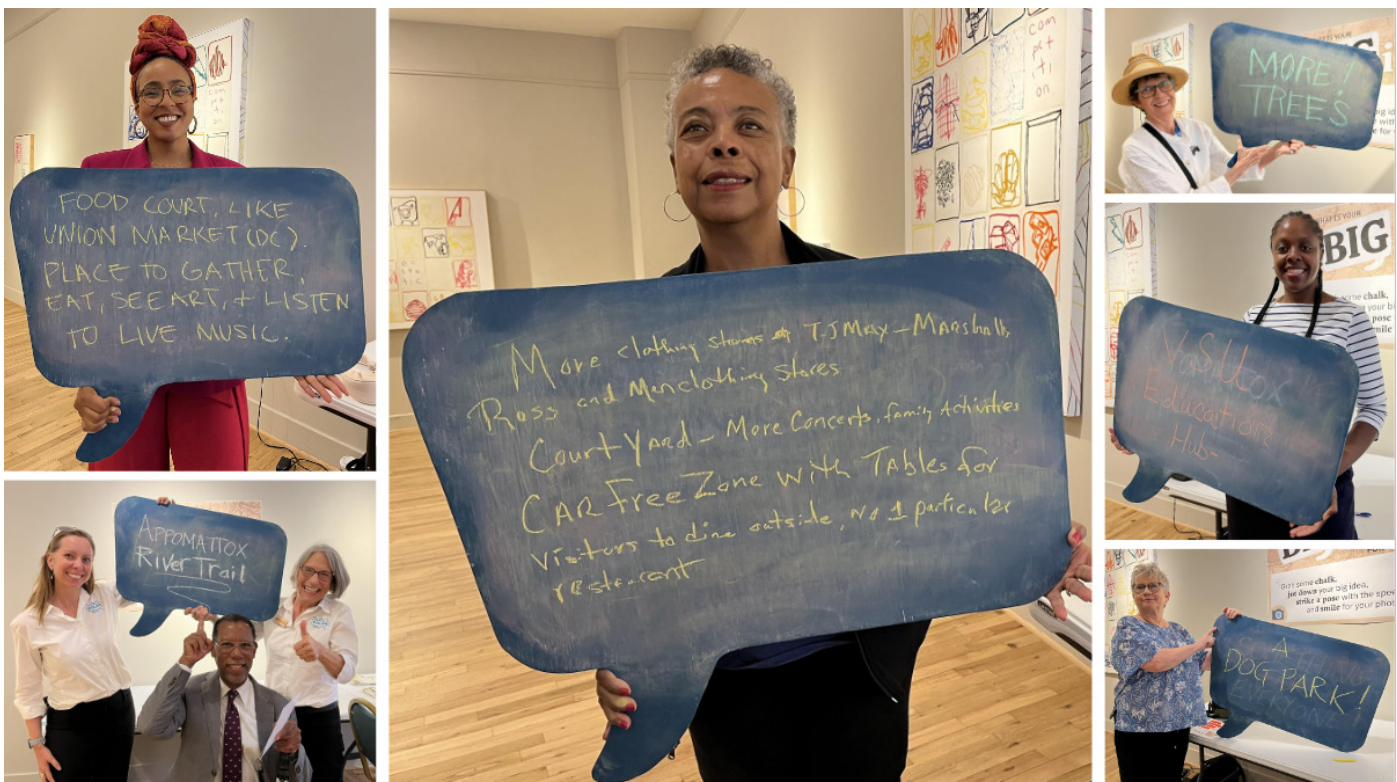 FOOD COURT, LIKE
UNION MARKET (DC).
PLACE TO GATHER,
EAT, SEE ART, + LISTEN
TO LIVE MUSIC.
APPOMATTOX
River Trail
com
pet
iti
on
More clothing stores TJ Max - Marshalls
Ross and Men clothing stores
Court Yard - More Concerts, family Activities
CAR Free Zone with Tables for
visitors to dine outside, No 1 particular
restaurant
MORE!
TREES
WHAT IS YOUR
BIG
some chalk,
pose
smile
VSU
Education
Hub-
Grab some chalk,
jot down your big idea,
strike a pose with the
and smile for your
A
DOG PARK!
EVERYONE